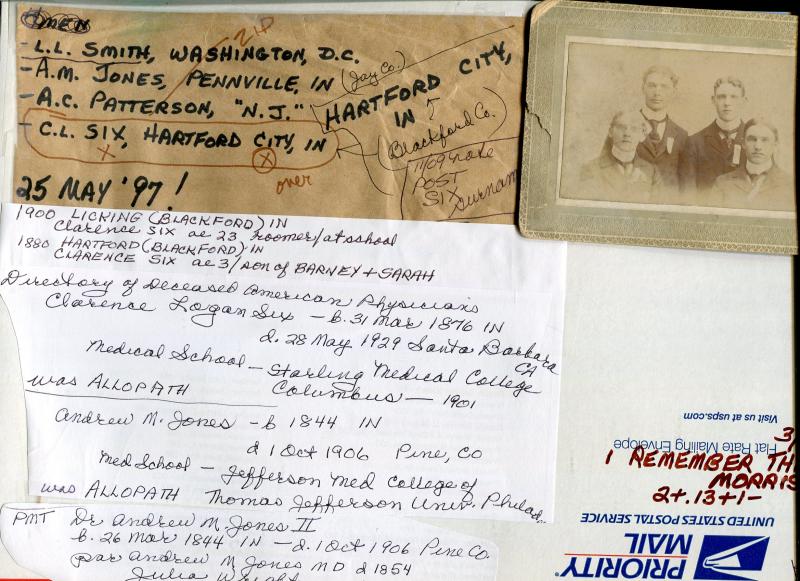 MEN
- L.L. SMITH, WASHINGTON, D.C.
- A.M. JONES, PENNVILLE, IN (Jay Co.)
- A.C. PATTERSON, "N.J."
- C.L. SIX, HARTFORD CITY, IN
X X
over
25 MAY '97!
HARTFORD CITY,
IN
(Blackford Co.)
11/09 note
POST
SIX
surnam
1900 LICKING (BLACKFORD) IN
Clarence SIX ae 23 roomer/at school
1880 HARTFORD (BLACKFORD) IN
CLARENCE SIX ae 3/son of BARNEY + SARAH
Directory of Deceased American Physicians
Clarence Logan Six - b. 31 Mar 1876 IN
d. 28 May 1929 Santa Barbara
CA
Medical School - Starling Medical College
Columbus - 1901
was ALLOPATH
Andrew M. Jones - b 1844 IN
d 1 Oct 1906 Pine, CO
Med School - Jefferson Med College of
Thomas Jefferson Univ. Philad
was ALLOPATH
PMT Dr Andrew M. Jones II
b. 26 Mar 1844 IN - d. 1 Oct 1906 Pine Co.
par Andrew M Jones MD d 1854
Julia Wright
Visit us at usps.com
Flat Rate Mailing Envelope
3/
I REMEMBER TH
MORRIS
2+.13+1-
UNITED STATES POSTAL SERVICE
PRIORITY
MAIL